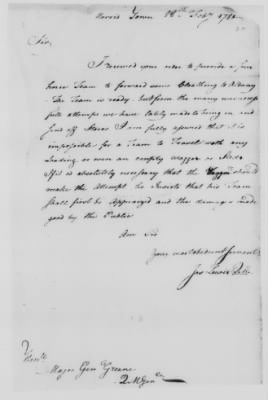 Morris Town 18th Feby 1780
Sir,
I received your order to provide a four
horse Team to forward some Cloathing to Albany
The Team is ready, but from the many
attempts we have lately made to bring in and
send off Stores I am fully assured that it is
impossible for a Team to Travel with any
Loading, or even an empty Waggon or Sled.
If it is absolutely necessary that the should
make the Attempt he Insists that his Team
shall first be Appraised and the damage made
good by the Public
Am Sir
Your most obedient Servant
Major Genl Greene
Q M Genl